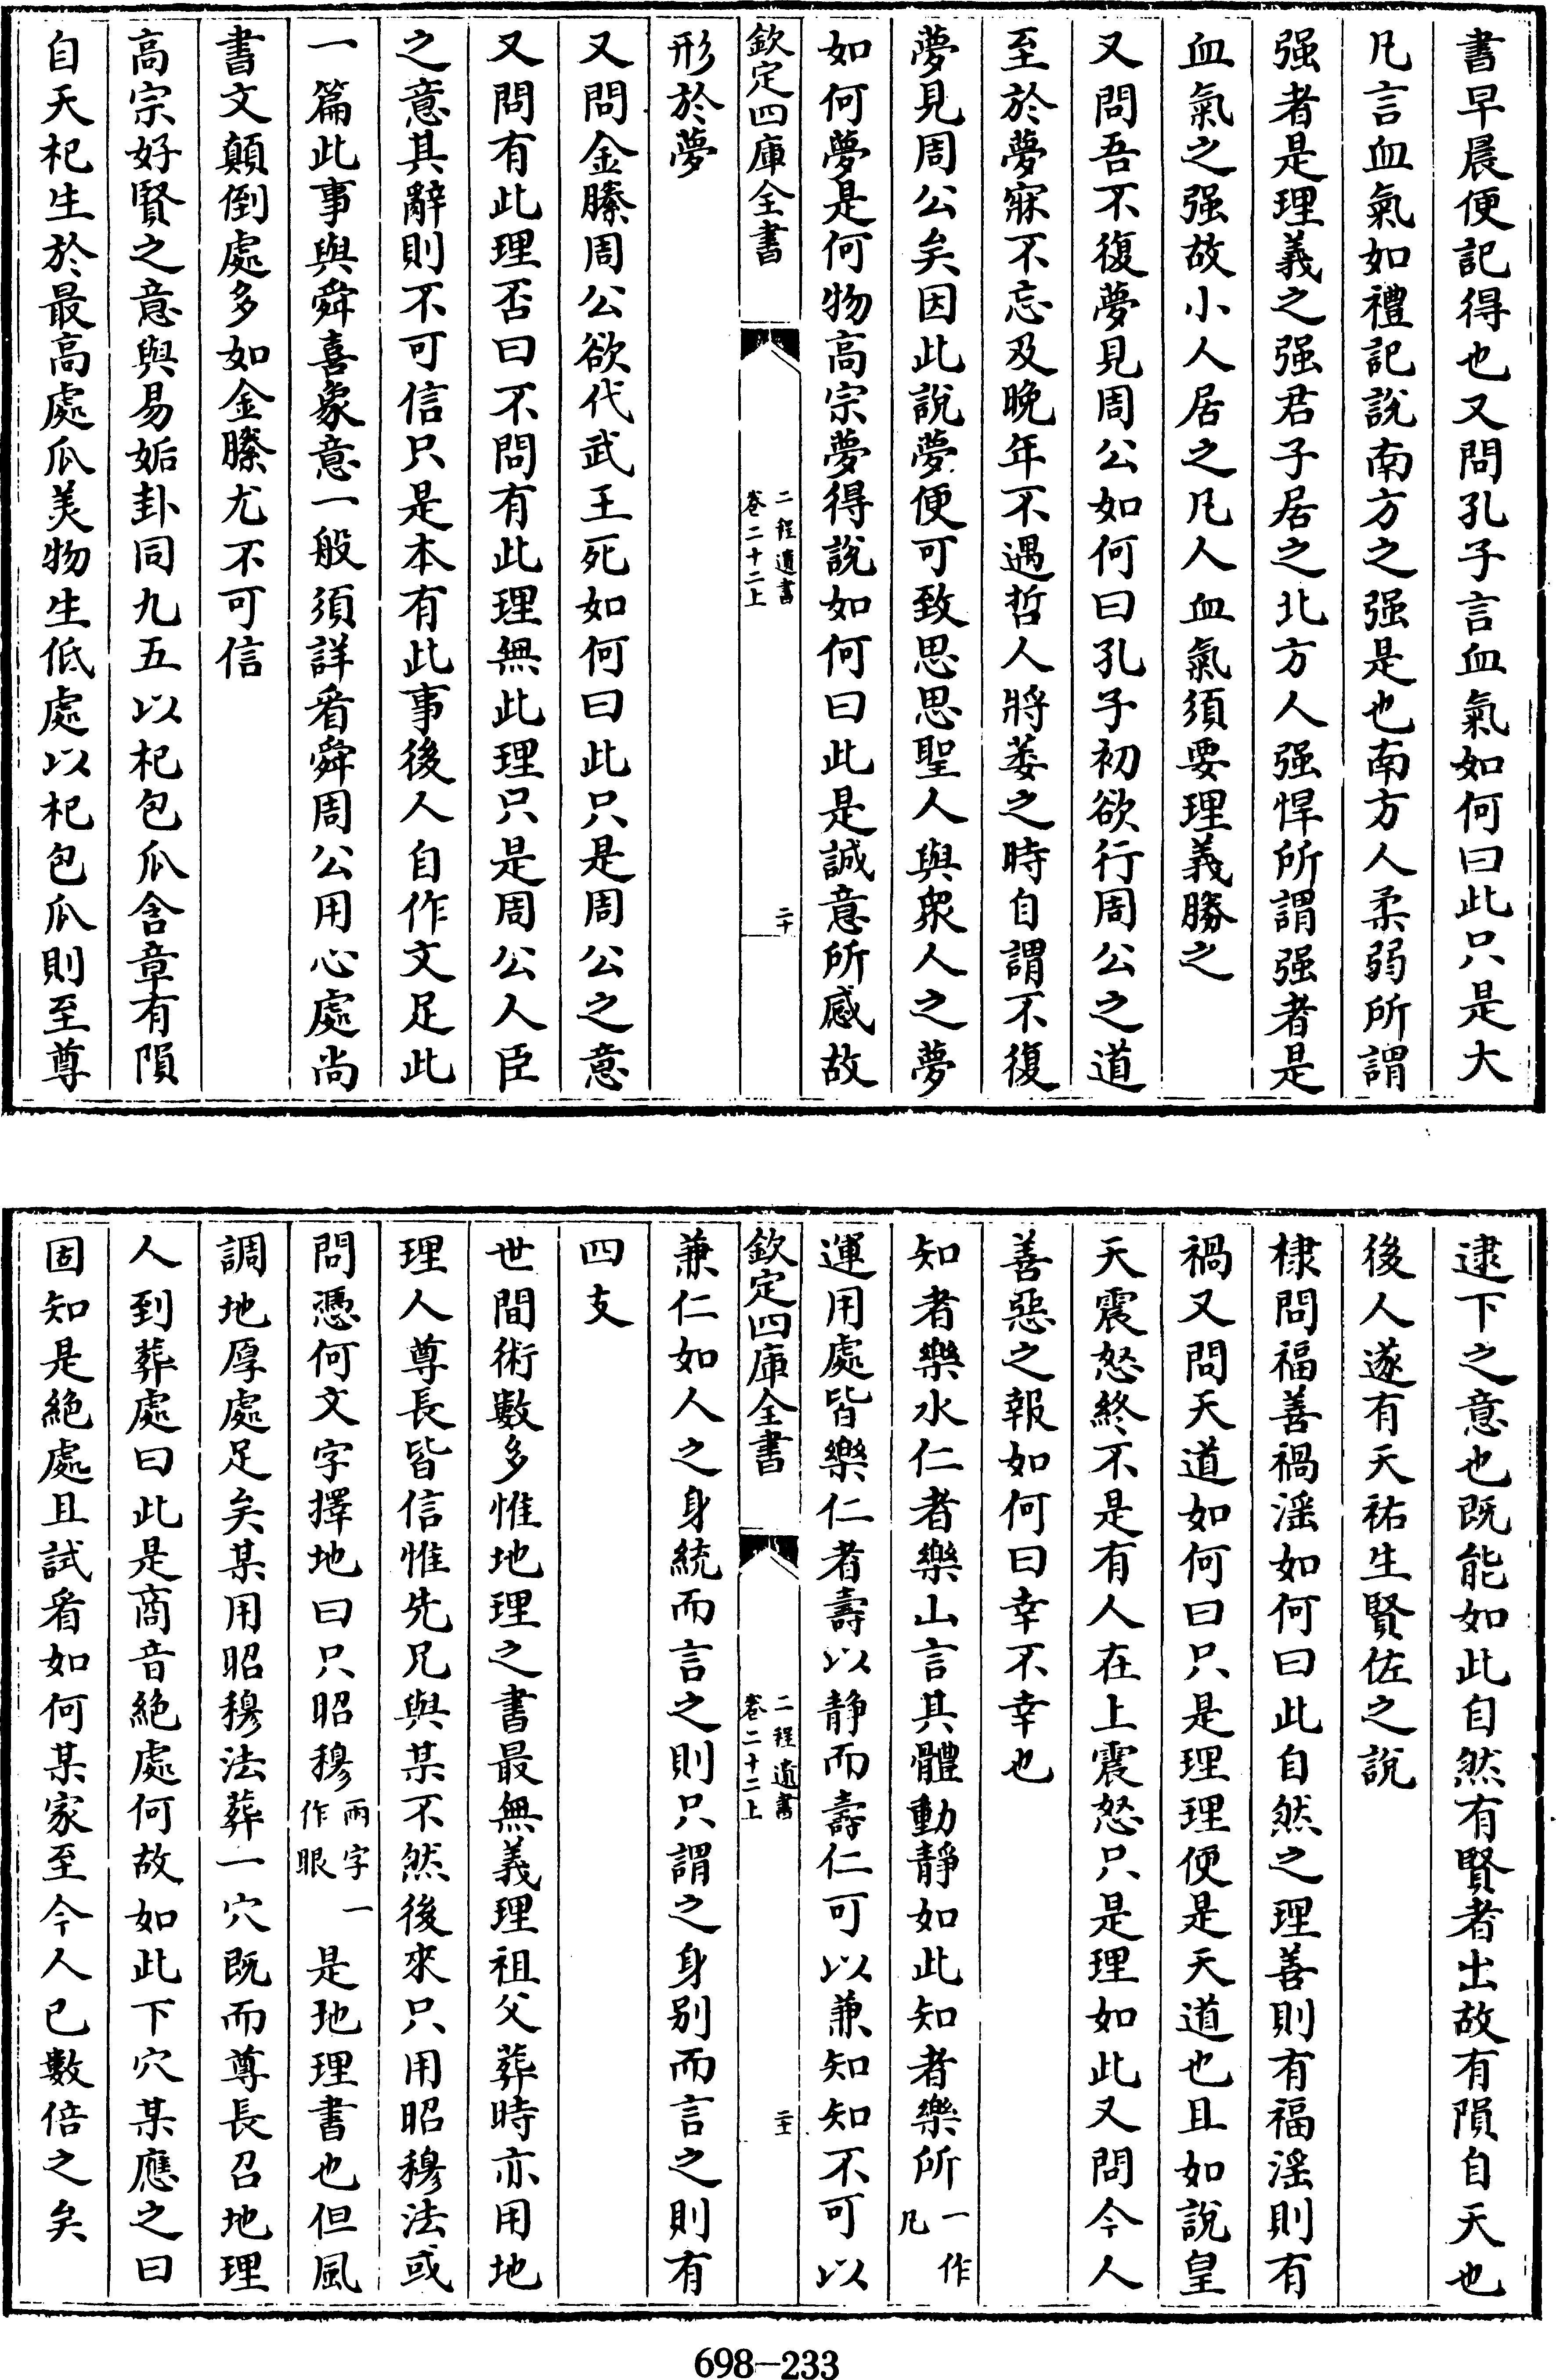 書早晨便記得也又問孔子言血氣如何曰此只是大
凡言血氣如禮記說南方之强是也南方人柔弱所謂
强者是理義之强君子居之北方人强悍所謂强者是
血氣之强故小人居之凡人血氣須要理義勝之
又問吾不復夢見周公如何曰孔子初欲行周公之道
至於夢寐不忘及晚年不遇哲人將萎之時自謂不復
夢見周公矣因此說夢便可致思思聖人與衆人之夢
如何夢是何物高宗夢得說如何曰此是誠意所感故
欽定四庫全書
二程遺書
卷二十二上
二十
形於夢
又問金縢周公欲代武王死如何曰此只是周公之意
又問有此理否曰不問有此理無此理只是周公人臣
之意其辭則不可信只是本有此事後人自作文足此
一篇此事與舜喜象意一般須詳看舜周公用心處尚
書文顛倒處多如金縢尤不可信
高宗好賢之意與易姤卦同九五以杞包瓜含章有隕
自天杞生於最高處瓜美物生低處以杞包瓜則至尊
逮下之意也既能如此自然有賢者出故有隕自天也
後人遂有天祐生賢佐之說
棣問福善禍淫如何曰此自然之理善則有福淫則有
禍又問天道如何曰只是理理便是天道也且如說皇
天震怒終不是有人在上震怒只是理如此又問今人
善惡之報如何曰幸不幸也
知者樂水仁者樂山言其體動靜如此知者樂所一作凡
運用處皆樂仁者壽以靜而壽仁可以兼知知不可以
欽定四庫全書
二程遺書
卷二十二上
二十一
兼仁如人之身統而言之則只謂之身别而言之則有
四支
世間術數多惟地理之書最無義理祖父葬時亦用地
理人尊長皆信惟先兄與某不然後來只用昭穆法或
問憑何文字擇地曰只昭穆兩字一作眼是地理書也但風
調地厚處足矣某用昭穆法葬一穴既而尊長召地理
人到葬處曰此是商音絶處何故如此下穴某應之曰
固知是絶處且試看如何某家至今人已數倍之矣
698-233